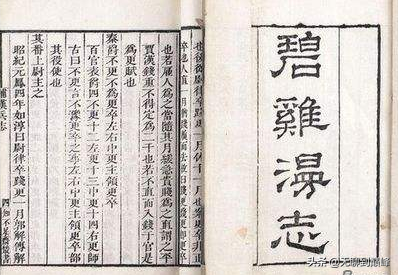 碧雞漫志
也若雇人為之當隨其月緩急貴賤為之直謂之卒
賈漢錢重不得定為二千也若不直而入錢于官是
為更賦也
秦爵不更為更卒左右中更主領更卒
百官表爵四不更十二左更十三中更十四右更師
古曰不更言不豫更卒之事左右中更主領更卒部
其役使也
其番上尉主之
昭紀元鳳四年如淳曰尉律卒踐更一月郭解傳解
補漢兵志
四 知不足齋叢書
头条 @无聊到巅峰